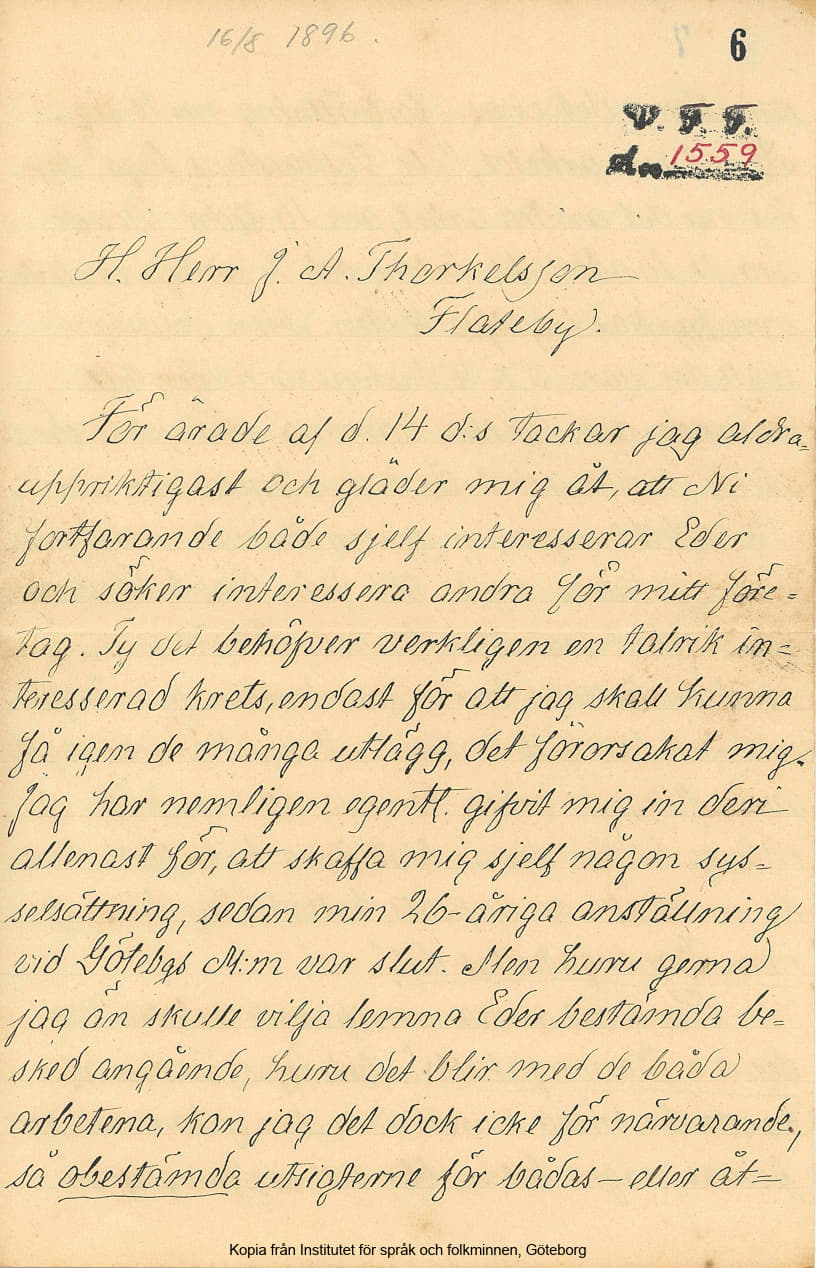 16/8 1896.
6
V. F. F.
dnr 1559
H. Herr J. A. Thorkelsson
Flateby.
För ärade af d. 14 d:s tackar jag aldra=
uppriktigast och gläder mig åt, att Ni
fortfarande både sjelf interesserar Eder
och söker interessera andra för mitt före=
tag. Ty det behöfver verkligen en talrik in=
teresserad krets, endast för att jag skall kunna
få igen de många utlägg, det förorsakat mig.
Jag har nemligen egentl. gifvit mig in deri
allenast för, att skaffa mig sjelf någon sys=
selsättning, sedan min 26-åriga anställning
vid Götebgs M:m var slut. Men huru gerna
jag än skulle vilja lemna Eder bestämda be=
sked angående, huru det blir med de båda
arbetena, kan jag det dock icke för närvarande,
så obestämda utsigterne för bådas – eller åt=
Kopia från Institutet för språk och folkminnen, Göteborg